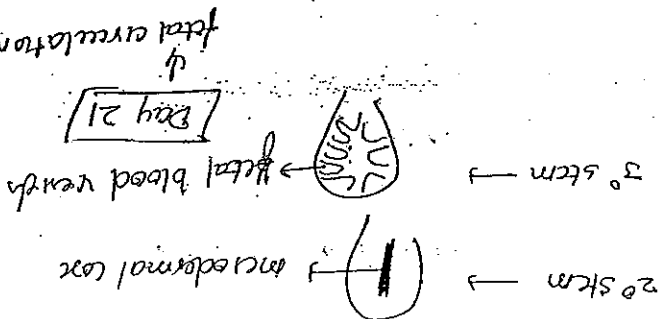 2° stem → → mesodermal core
3° stem → → fetal blood vessels
Day 21
↓
fetal circulation